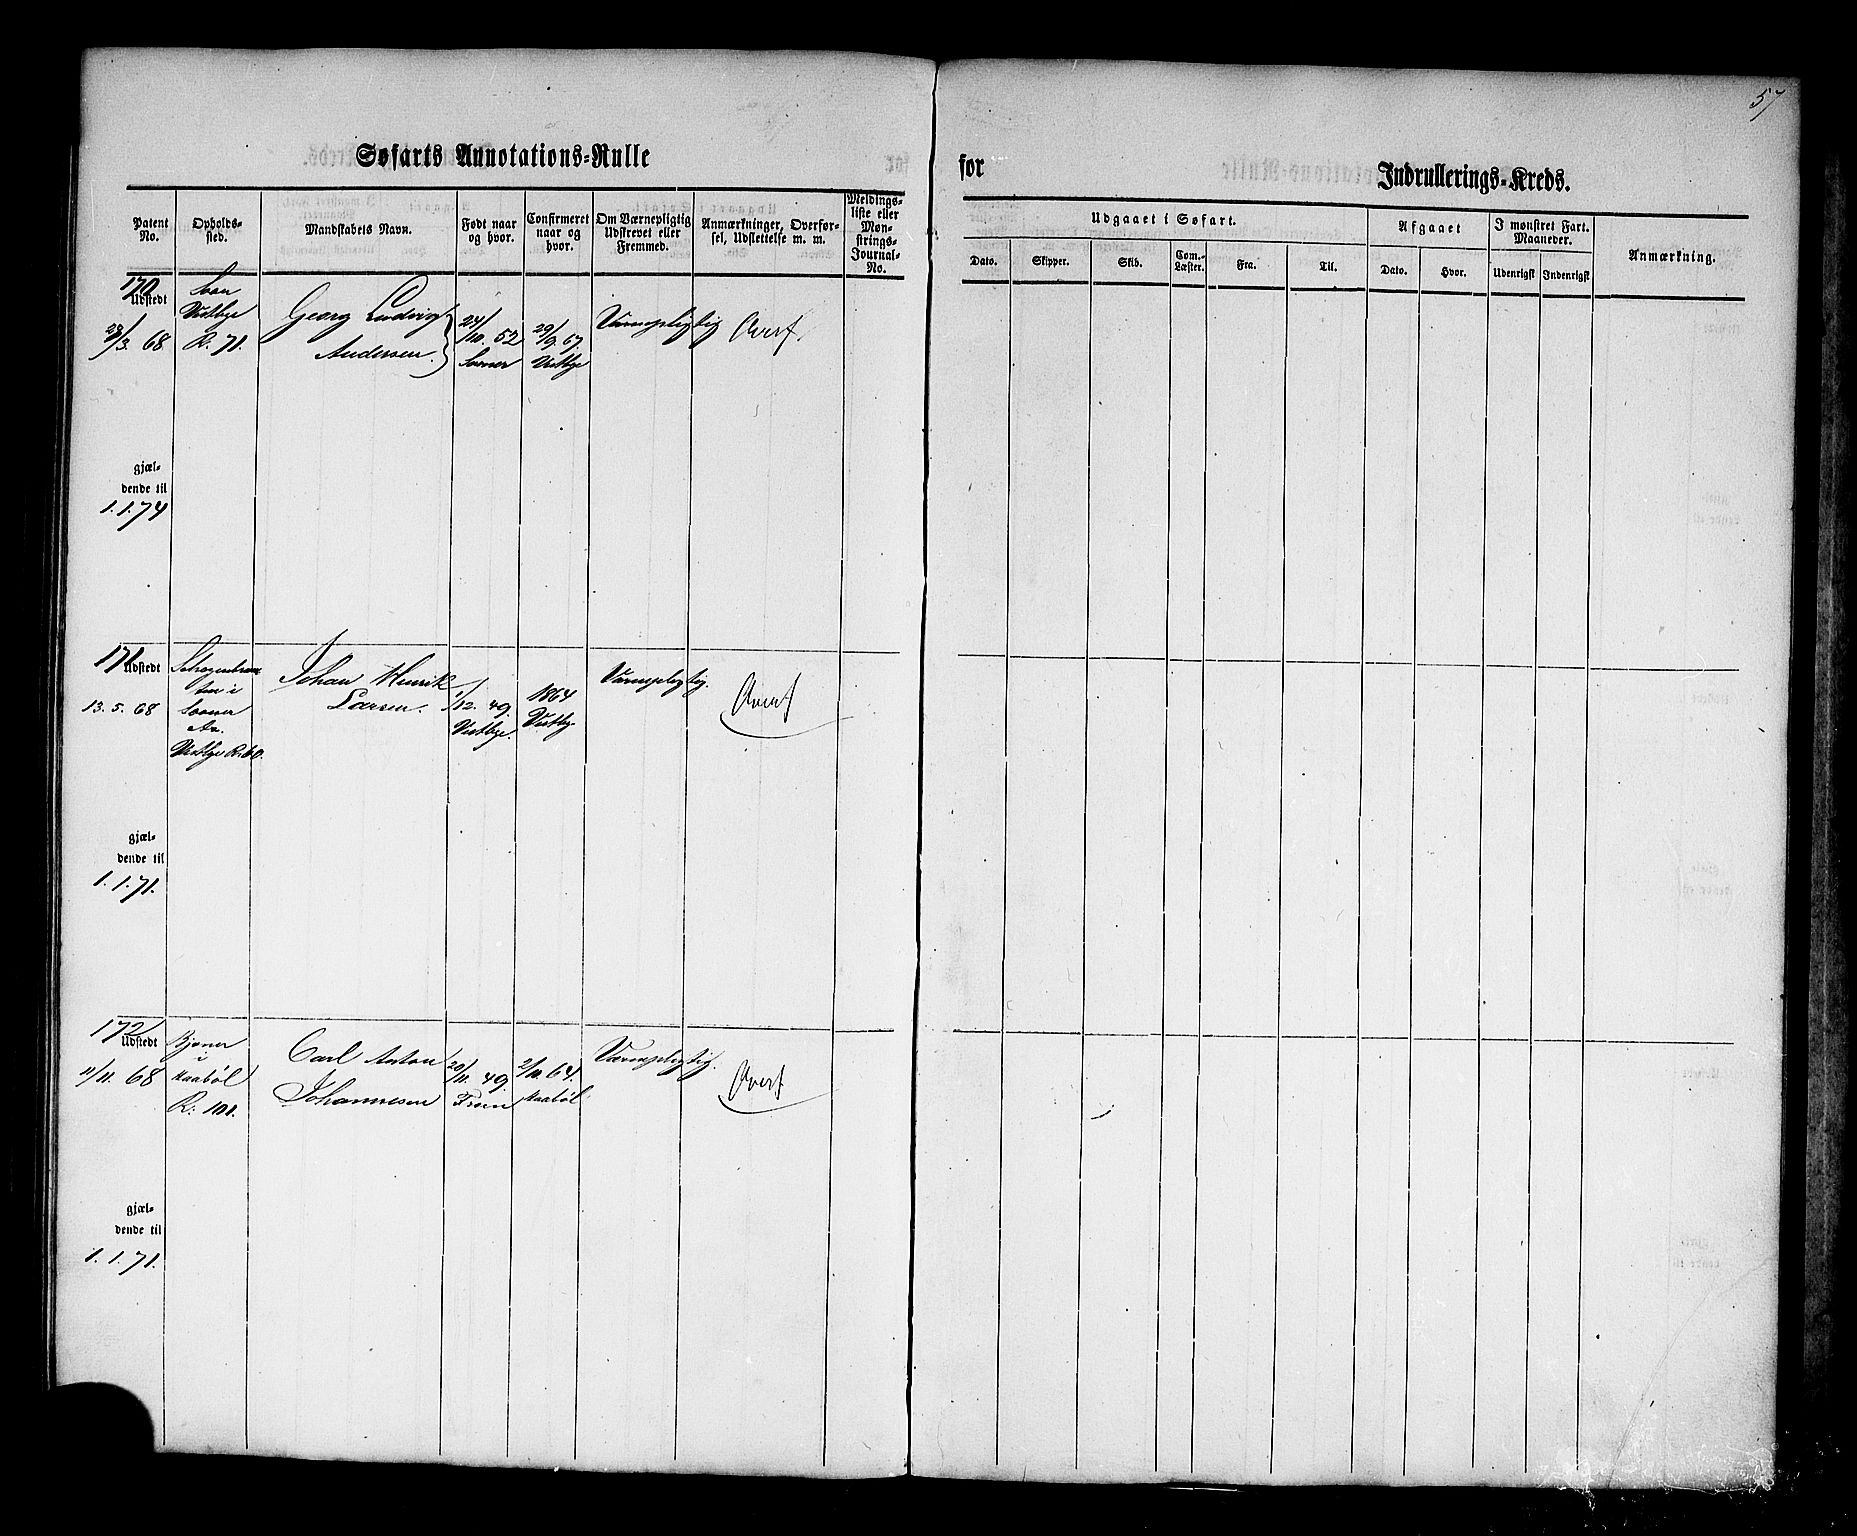 57
Søfarts Annotations=Rulle
for
Indrullerings=Kreds.
Patent No.
Opholds=sted.
Mandskabets Navn.
Født naar og hvor.
Confirmeret naar og hvor.
Om Værnepligtig Udskrevet eller Fremmed.
Anmærkninger, Overførsel, Udslettelse m. m.
Meldings=liste eller Møn=strings=Journal=No.
Udgaaet i Søfart.
Afgaaet
I mønstret Fart. Maaneder.
Anmærkning.
Dato.
Skipper.
Skib.
Com.=Læster.
Fra.
Til.
Dato.
Hvor.
Udenrigst
Indenrigst
170
Udstedt
28/3. 68
Vestbye
R. 71.
Georg Ludvig
Andersen.
24/10. 52
Soner
29/9. 67.
Vestbye
Værnepligtig
Overf.
gjæl=
dende til
1. 1. 74
171
Udstedt
13. 5. 68
i
Sooner
Vestbye R. 60.
Johan Henrik
Larsen.
1/12. 49.
Vestbye.
1864
Vestby
Værnepligtig.
Overf
gjæl=
dende til
1. 1. 71.
172
Udstedt
11/11. 68
i
Haabøl
R. 101.
Carl Anton
Johannesen
20/11. 49.
Froen
2/10. 64.
Haabøl
Værnepligtig.
Overf
gjæl=
dende til
1. 1. 71.